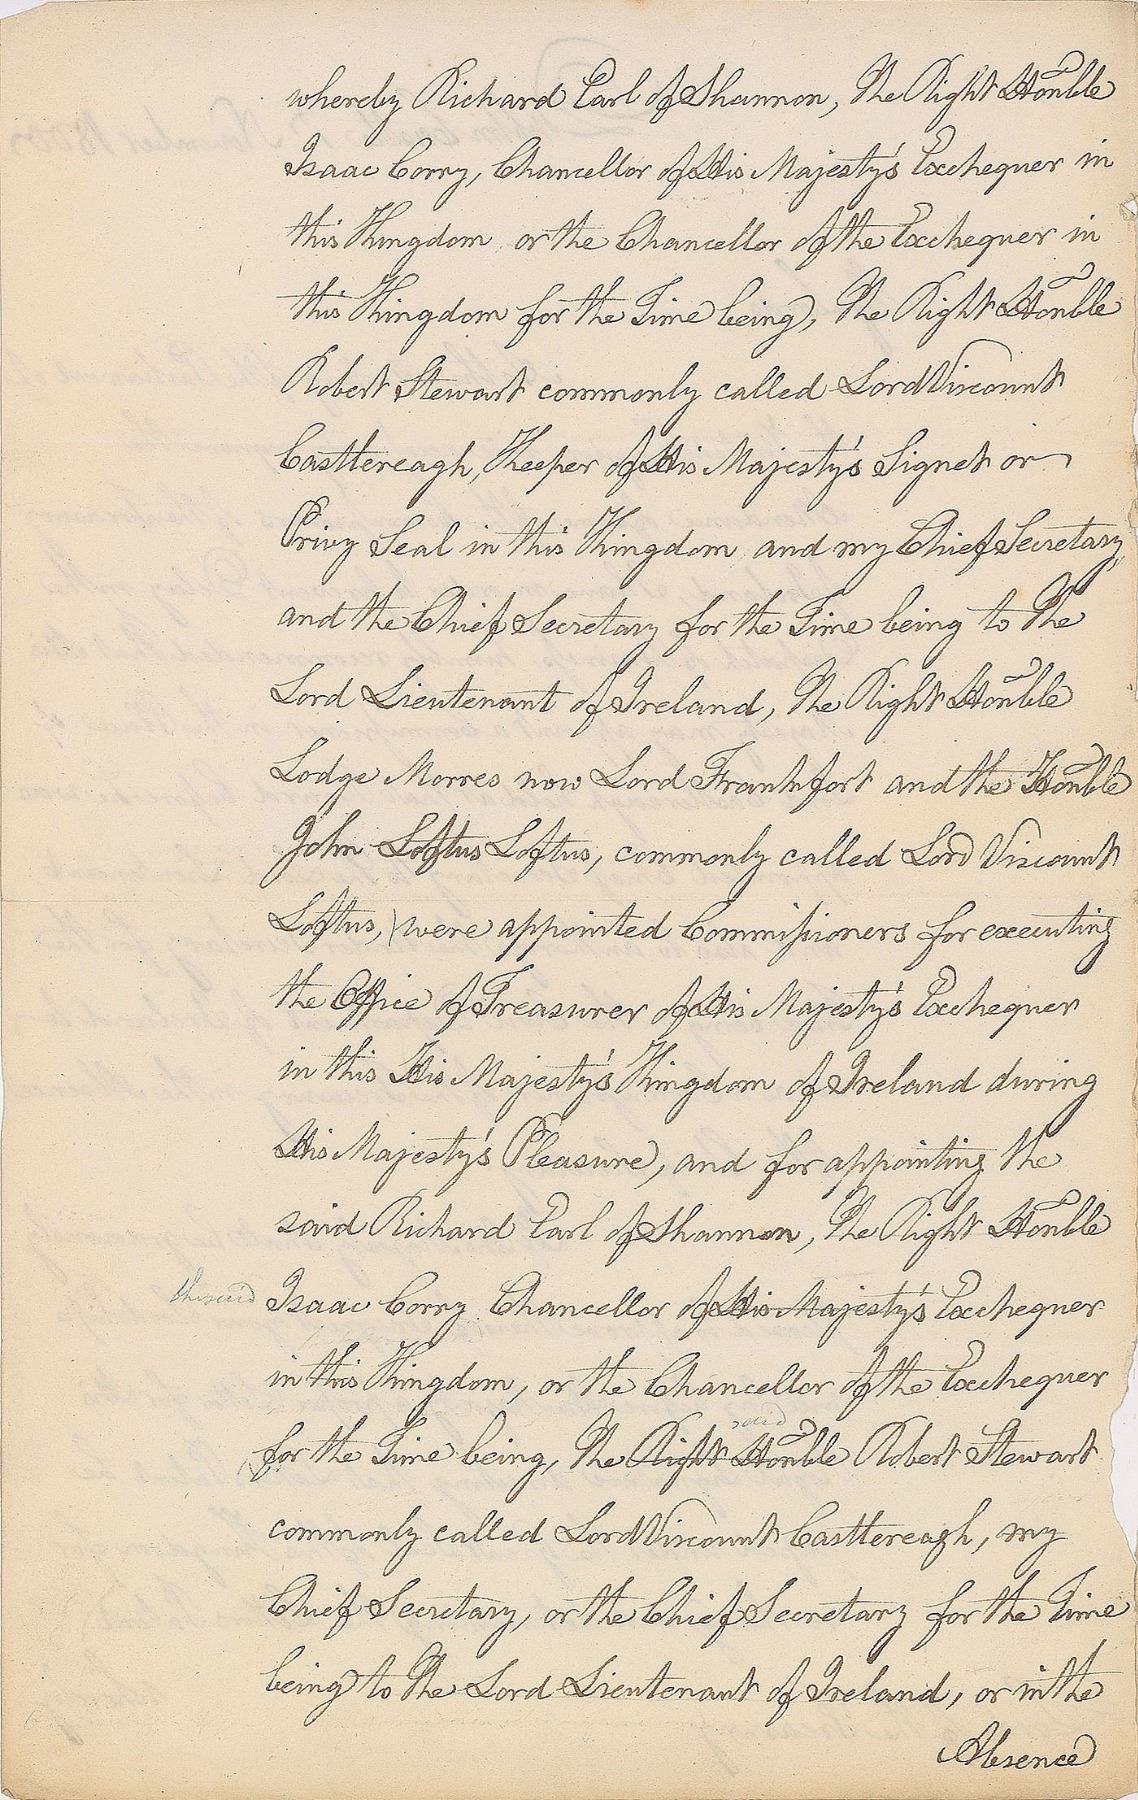 whereby Richard Earl of Shannon, The Right Honble
Isaac Corry, Chancellor of His Majesty's Exchequer in
this Kingdom or the Chancellor of the Exchequer in
this Kingdom for the Time being, The Right Honble
Robert Stewart commonly called Lord Viscount
Castlereagh, Keeper of His Majesty's Signet or
Privy Seal in this Kingdom and my Chief Secretary,
and the Chief Secretary for the Time being to The
Lord Lieutenant of Ireland, The Right Honble
Lodge Morres now Lord Frankfort and the Honble
John Loftus Loftus, commonly called Lord Viscount
Loftus, were appointed Commissioners for executing
the Office of Treasurer of His Majesty's Exchequer
in this His Majesty's Kingdom of Ireland during
His Majesty's Pleasure, and for appointing the
said Richard Earl of Shannon, The Right Honble
the said Isaac Corry Chancellor of His Majesty's Exchequer
in this Kingdom, or the Chancellor of the Exchequer
said
for the Time being, The Right Honble Robert Stewart
commonly called Lord Viscount Castlereagh, my
Chief Secretary, or the Chief Secretary for the Time
being to The Lord Lieutenant of Ireland, or in the
Absence